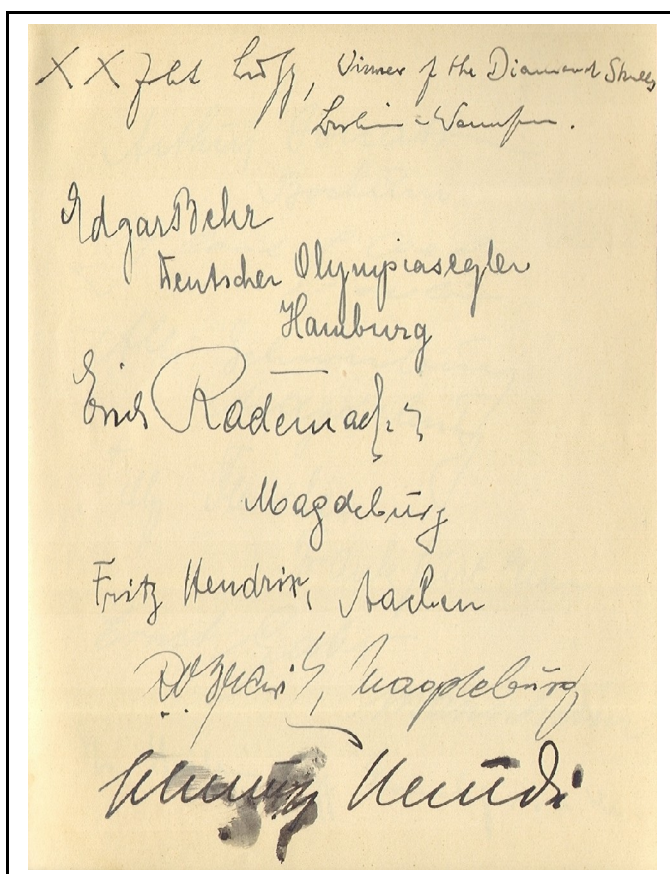 XX
Winner of the Diamond Skulls
Berlin - Wannsee.
Edgar Behr
Deutscher Olympiasegler
Hamburg
Erich Rademacher
Magdeburg
Fritz Hendrix, Aachen
Magdeburg